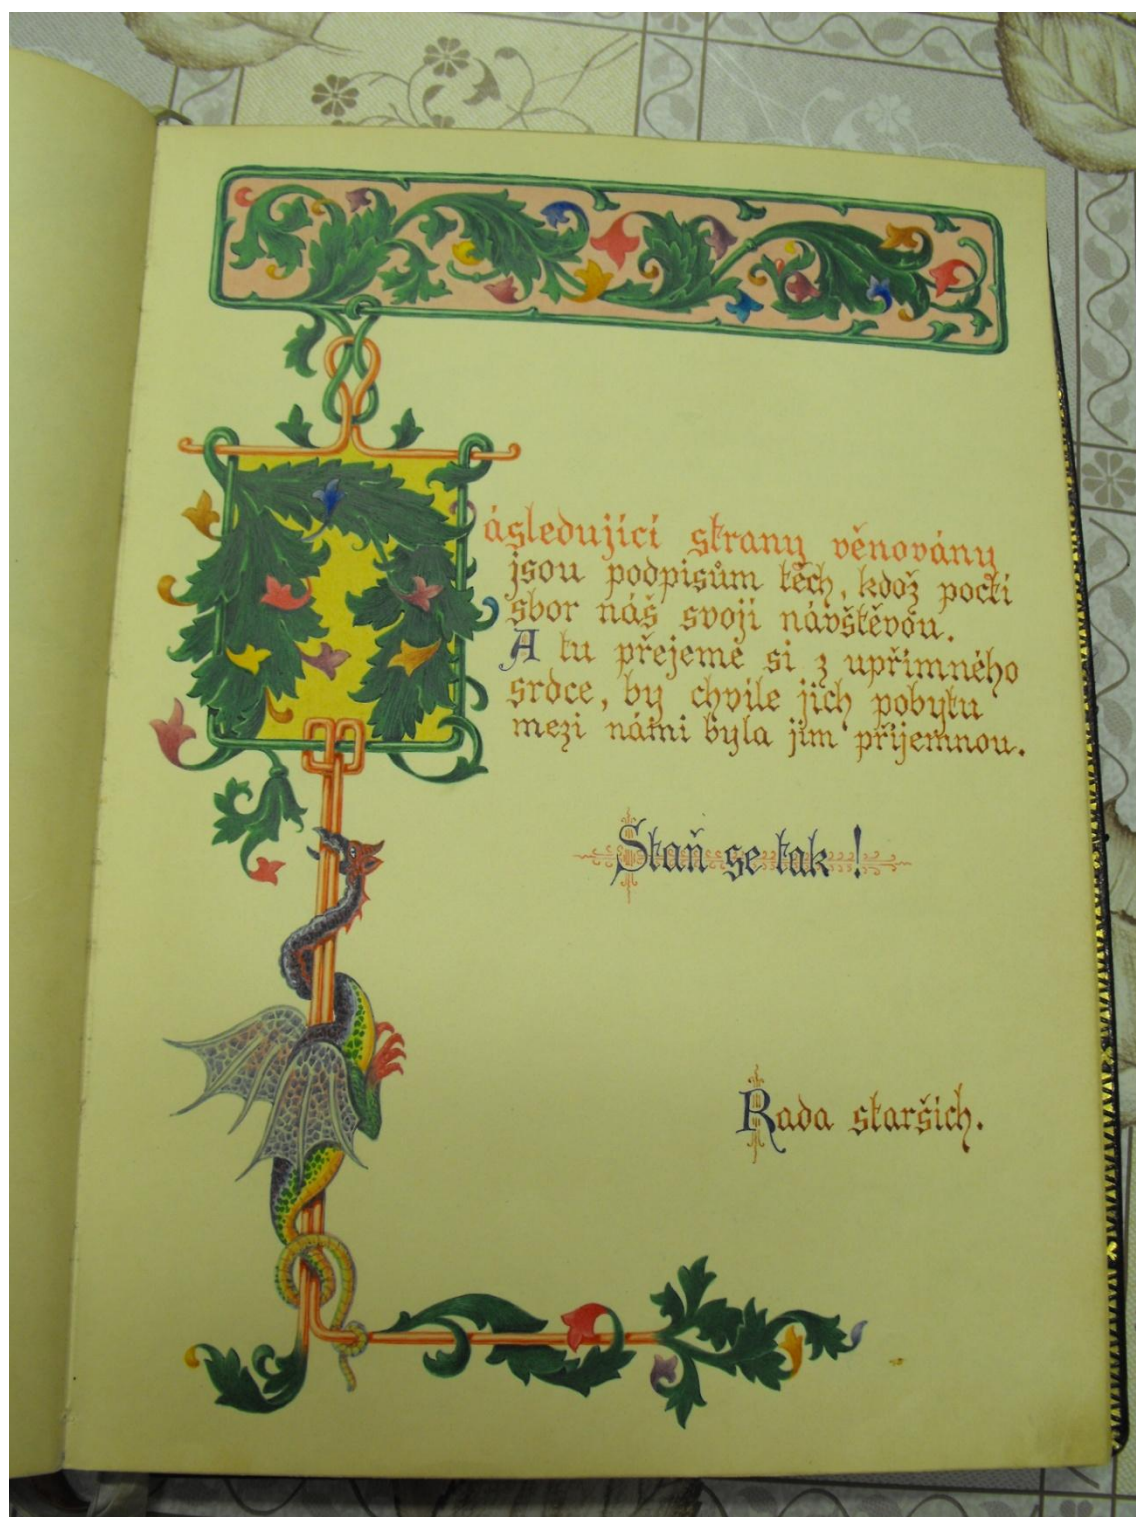 Následující strany věnovány
jsou podpisům těch, kdož poctí
sbor náš svojí návštěvou.
A tu přejeme si z upřímného
srdce, by chvíle jich pobytu
mezi námi byla jim příjemnou.
Staň se tak!
Rada starších.